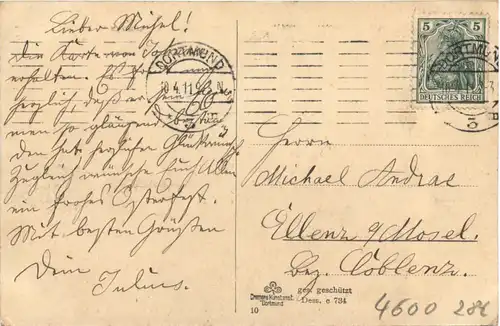 Lieber Michel!
Die Karte von
erhalten.
herzlich, daß er sein
so glänzend
den hat herzlichen Glückwunsch
Zugleich wünsche Euch Allen
ein frohes Osterfest.
Mit besten Grüßen
Dein Julius.
DORTMUND
10.4.11
5 5
DEUTSCHES REICH
DORTMUND
Herrn
Michael Andrae
Ellenz a/Mosel.
Bez. Coblenz.
ges. geschützt
Dess. c 734
Dortmund
10
4600 286